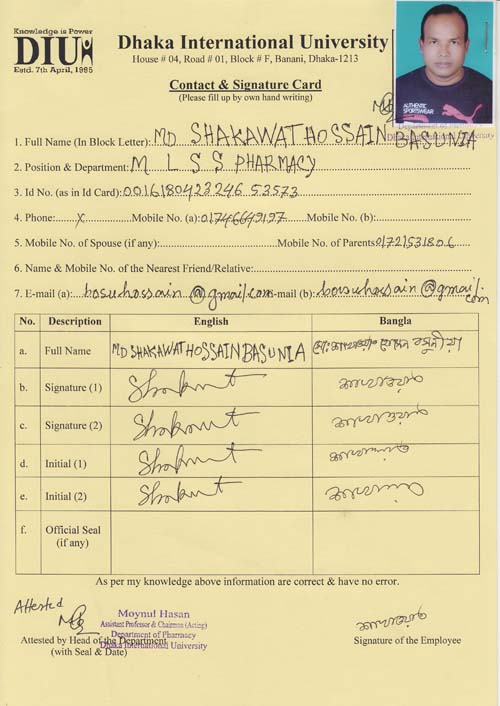 Knowledge is Power
DIU
Estd. 7th April, 1995
Dhaka International University
House # 04, Road # 01, Block # F, Banani, Dhaka-1213
Contact & Signature Card
(Please fill up by own hand writing)
AUTHENTIC
SPORTSWEAR
1. Full Name (In Block Letter): MD SHAKAWAT HOSSAIN BASUNIA
2. Position & Department: M L S S PHARMACY
3. Id No. (as in Id Card): 0016180423246 53573
4. Phone: X Mobile No. (a): 01746649197 Mobile No. (b):
5. Mobile No. of Spouse (if any): Mobile No. of Parents 01721531806
6. Name & Mobile No. of the Nearest Friend/Relative:
7. E-mail (a): bosuhossain@gmail.com E-mail (b): bosuhossain@gmail.com
No. Description English Bangla
a. Full Name MD SHAKAWAT HOSSAIN BASUNIA
b. Signature (1) Shakawt
c. Signature (2) Shakawt
d. Initial (1) Shakawt
e. Initial (2) Shakawt
f. Official Seal
(if any)
As per my knowledge above information are correct & have no error.
Attested
Moynul Hasan
Assistant Professor & Chairman (Acting)
Department of Pharmacy
Dhaka International University
Attested by Head of the Department
(with Seal & Date)
Signature of the Employee